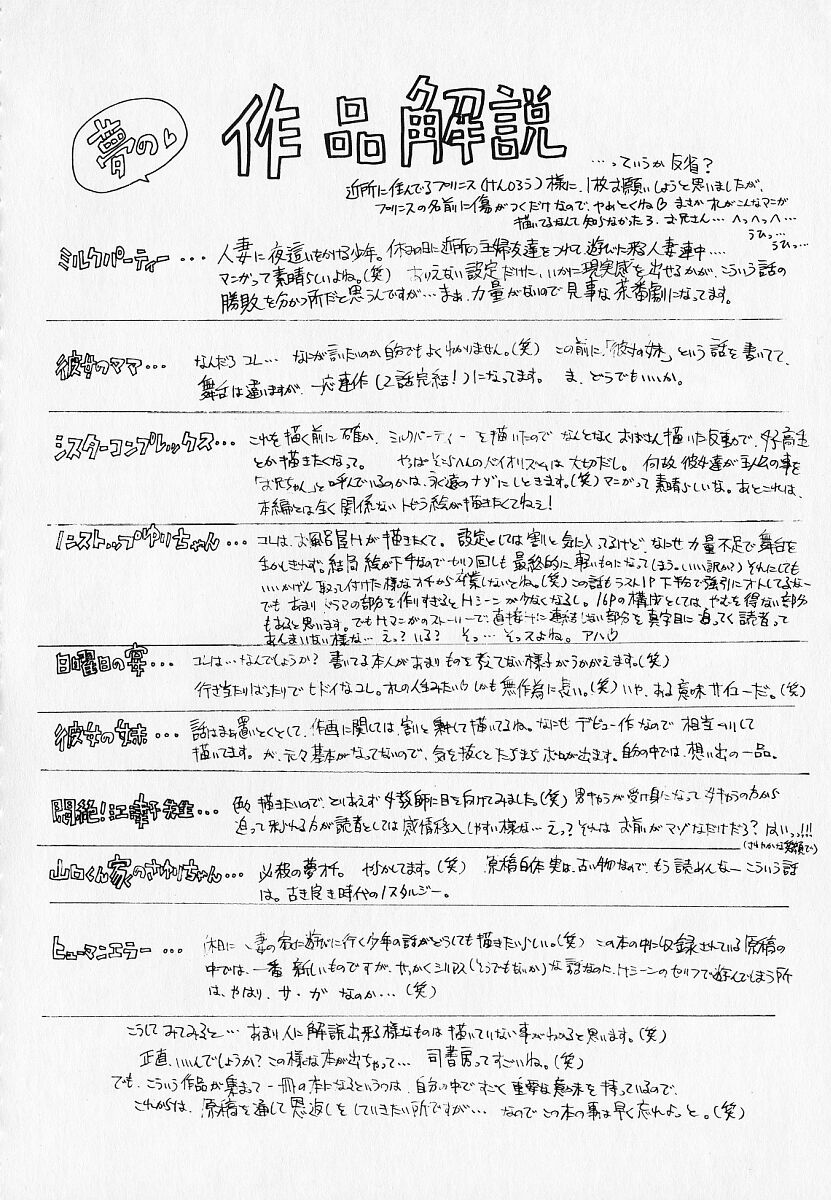 夢の
作品解説
…っていうか反省?
近所に住んでるプリンス(けんじろう)様に、1枚お願いしようと思いましたが、
プリンスの名前に傷がつくだけなので、やめとくね まさかオレがこんなマンガ
描いてるなんて知らなかったろ、お兄さん… へっへっへ…
うひっ…
うひっ…
ミルクパーティー… 人妻に夜這いをかける少年。休みの日に近所の主婦友達をつれて遊びに来る人妻連中…
マンガって素晴らしいよね。(笑) ありえない設定だけに、いかに現実感を出せるかが、こういう話の
勝敗を分かつ所だと思うんですが…まぁ、力量がないので見事な茶番劇になってます。
彼女のママ… なんだろコレ… なにが言いたいのか自分でもよくわかりません。(笑) この前に、「彼女の妹」という話を書いてて、
舞台は違いますが、一応連作(2話完結!)になってます。 ま、どうでもいいか。
シスターコンプレックス… これを描く前に確か、ミルクパーティーを描いたので なんとなくおばさん描いた反動で、女子高生
とか描きたくなって。 やっぱそこらへんのバイオリズムは大切だし。 何故彼女達が主人公の事を
「お兄ちゃん」と呼んでいるのかは、永遠のナゾにしときます。(笑)マンガって素晴らしいな。あとこれは、
本編とは全く関係ないトビラ絵が描きたくてねェ!
ノンストップゆりちゃん… コレは、お風呂屋Hが描きたくて。 設定としては割と気に入ってるけど、なにせ力量不足で舞台を
生かしきれず。結局絵が下手なのでセリフ回しも最終的に軽いものになってしまう。(いい訳か?)それにしても
いいかげん取って付けた様なオチから卒業しないとね。(笑)この話もラスト1P下物で強引にオトしてるなー
でもあまりドラマの部分を作りすぎるとHシーンが少なくなるし。16Pの構成としては、やむを得ない部分
もあると思います。でもHマンガのストーリーで、直接Hに連結しない部分を真字目に追ってく読者って
あんまいない様な…えっ?いる? そっ…そっスよね。アハ
日曜日の… コレは…なんでしょうか? 書いてる本人があまりものを考えてない様子がうかがえます。(笑)
行き当たりばったりでヒドイなコレ。オレの人生みたい しかも無作為に長い。(笑)いや、ある意味サイコーだ。(笑)
彼女の妹… 話はまぁ置いとくとして、作画に関しては割と無理して描いてるね。なにせデビュー作なので相当
描いてます。が、元々基本がなってないので、気を抜くとたちまちボロが出ます。自分の中では、想い出の一品。
悶絶!江幸子先生… 色々描きたいので、とりあえず女教師に目を向けてみました。(笑) 男キャラが受け身になって女キャラの方から
迫って来られる方が読者としては感情移入しやすい様な…えっ?それは お前がマゾなだけだろ? はいっっ!!!
(さわやかな笑顔で)
山口くん家のさゆりちゃん… 必殺の夢オチ。 やらかしてます。(笑) 原稿自体実は、古い物なので、もう読めんなーこういう話
は。古き良き時代のノスタルジー。
ヒューマンエラー… 人妻の家に遊びに行く少年の話がどうしても描きたいらしい。(笑) この本の中に収録されている原稿の
中では、一番新しいものですが、せっかくシリアス(そうでもないか)な話なのに、Hシーンのセリフで遊んでしまう所
は、やはり、サ・ガ なのか…(笑)
こうしてみてみると… あまり人に解説出来る様なものは描いていない事がわかると思います。(笑)
正直、いいんでしょうか?この様な本が出ちゃって… 司書房ってすごいね。(笑)
でも、こういう作品が集まって一冊の本になるというのは、自分の中ですごく重要な意味を持っているので、
これからは、原稿を通して恩返しをしていきたい所ですが… なのでこの本の事は早く忘れよっと。(笑)